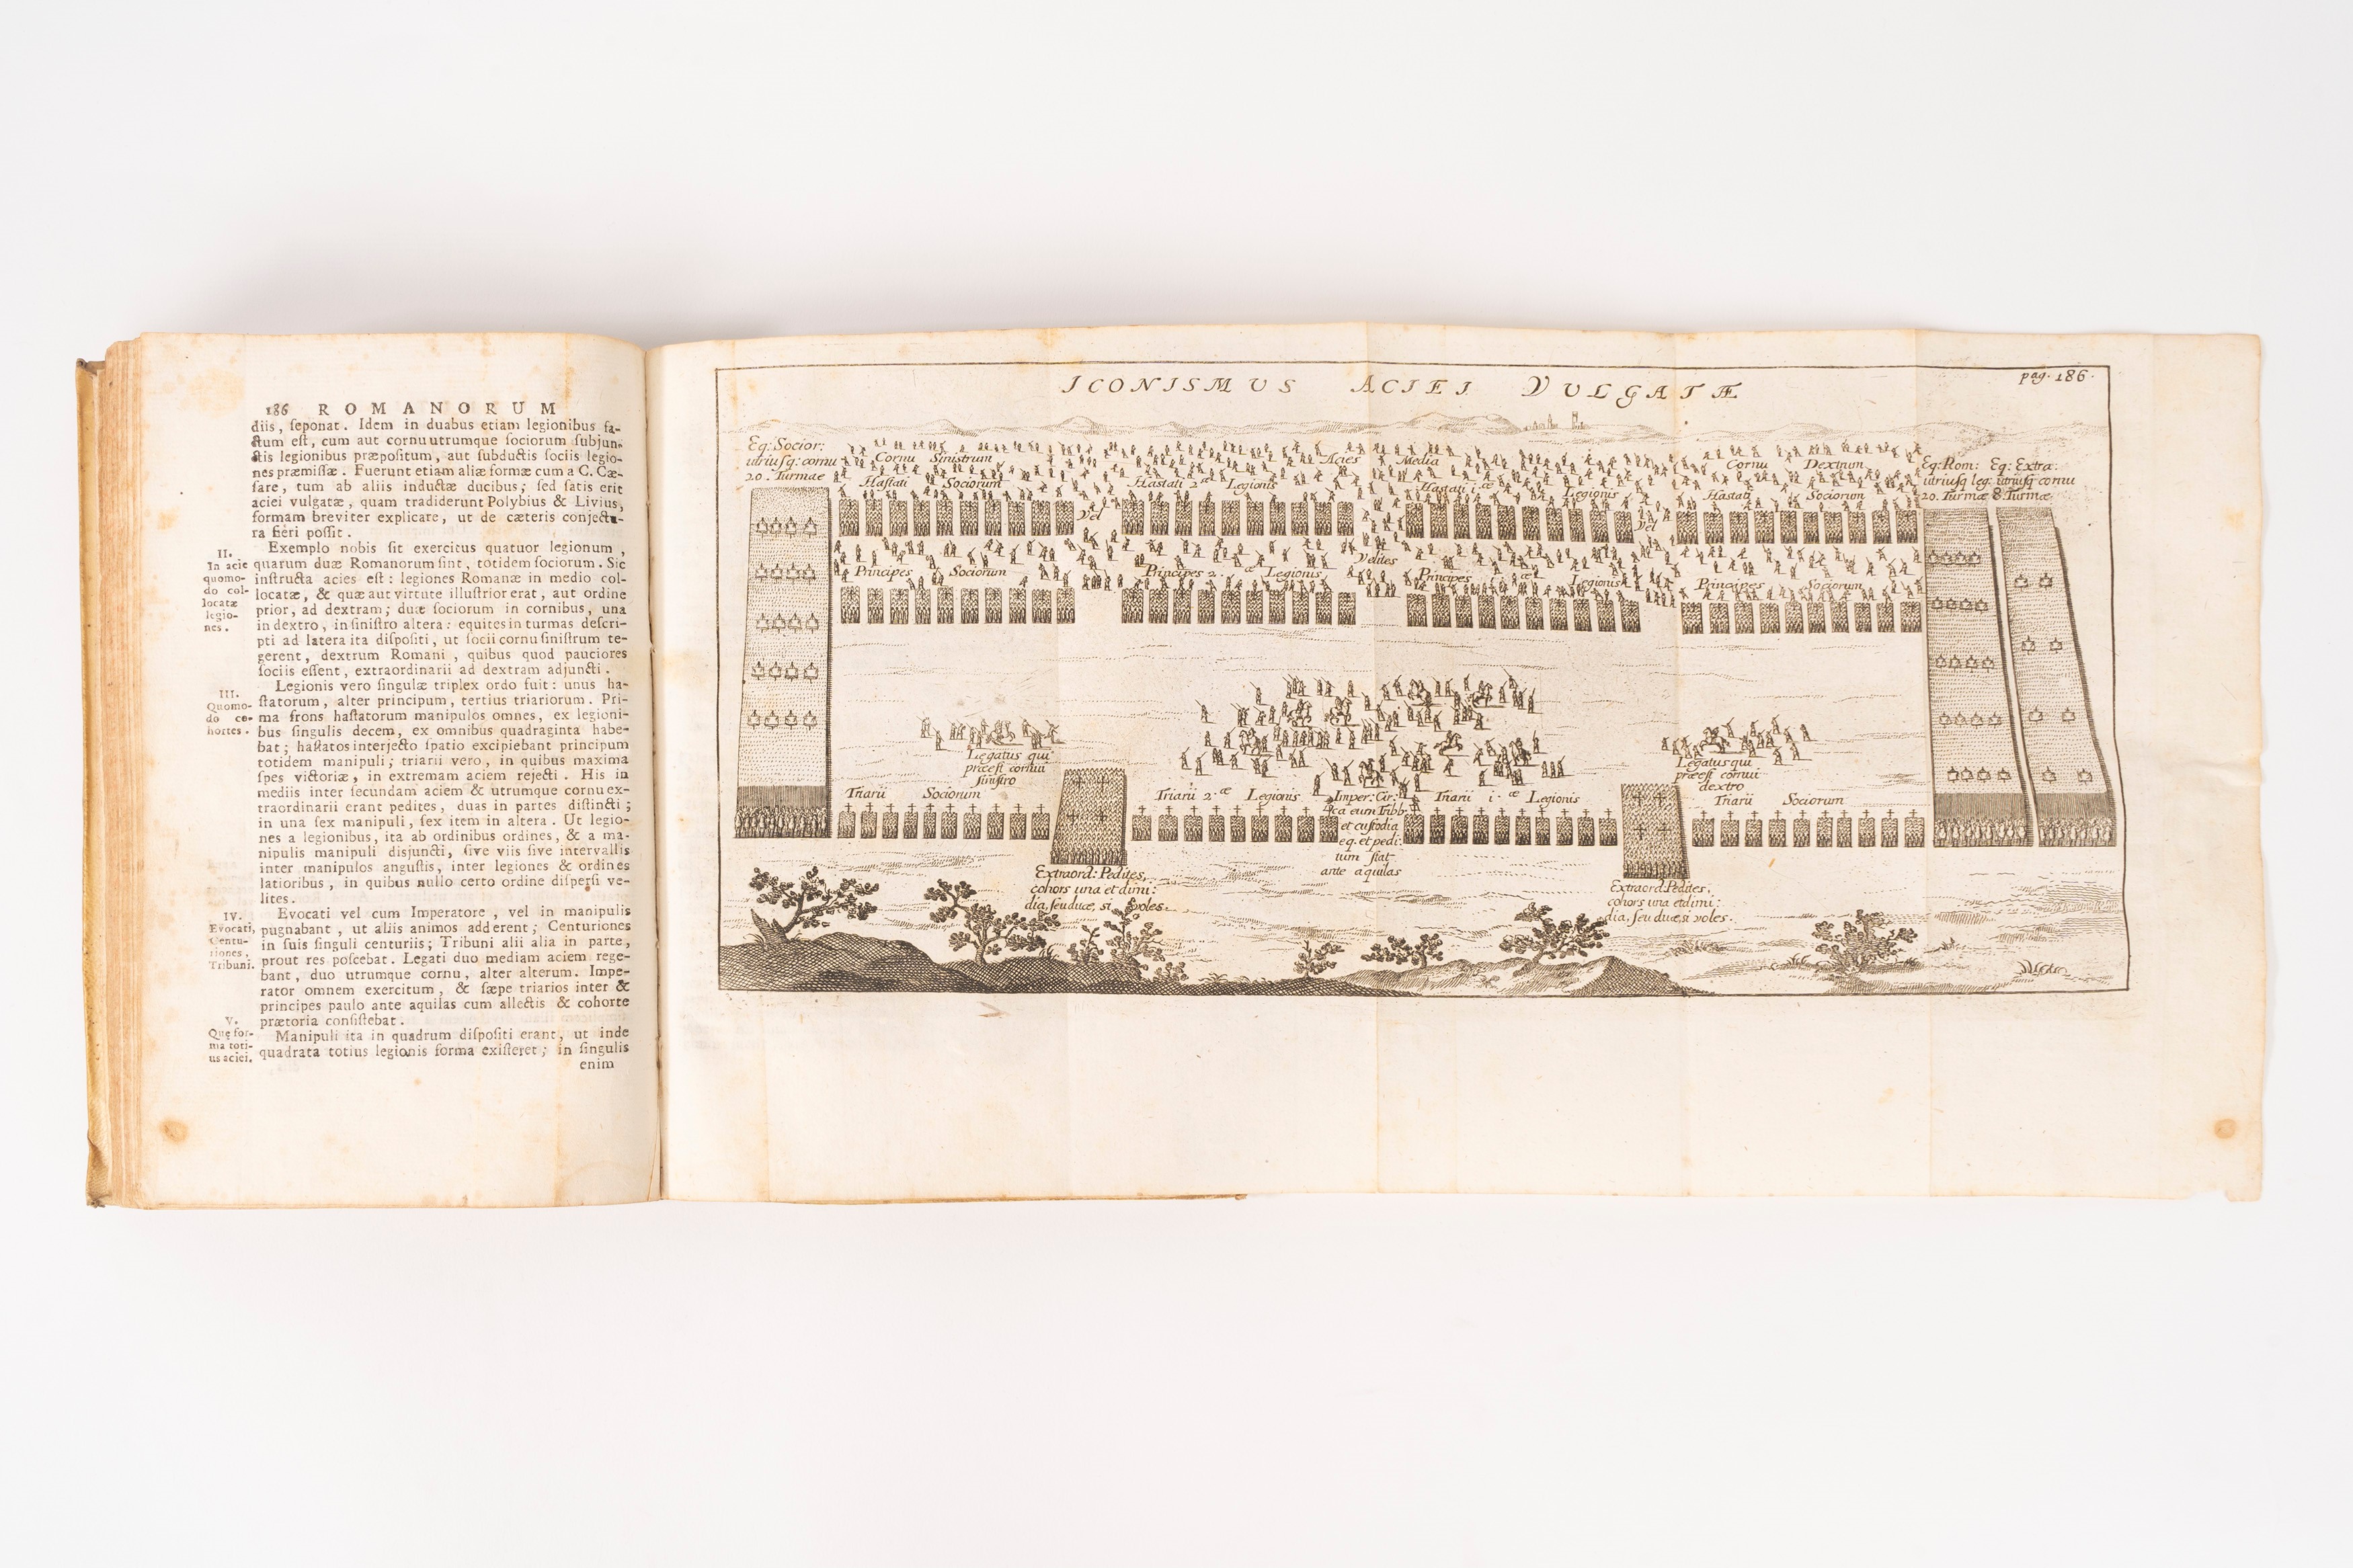 186 ROMANORUM
diis, ſeponat. Idem in duabus etiam legionibus fa-
ctum eſt, cum aut cornu utrumque ſociorum ſubjun-
ctis legionibus præpoſitum, aut ſubductis ſociis legio-
nes præmiſſæ. Fuerunt etiam aliæ formæ cum a C. Cæ-
ſare, tum ab aliis inductæ ducibus; ſed ſatis erit
aciei vulgatæ, quam tradiderunt Polybius & Livius,
formam breviter explicare, ut de cæteris conjectu-
ra fieri poſſit.
II.
In acie
quomo-
do col-
locatæ
legio-
nes.
Exemplo nobis ſit exercitus quatuor legionum,
quarum duæ Romanorum ſint, totidem ſociorum. Sic
inſtructa acies eſt: legiones Romanæ in medio col-
locatæ, & quæ aut virtute illuſtrior erat, aut ordine
prior, ad dextram; duæ ſociorum in cornibus, una
in dextro, in ſiniſtro altera: equites in turmas deſcri-
pti ad latera ita diſpoſiti, ut ſocii cornu ſiniſtrum te-
gerent, dextrum Romani, quibus quod pauciores
ſociis eſſent, extraordinarii ad dextram adjuncti.
III.
Quomo-
do co-
hortes.
Legionis vero ſingulæ triplex ordo fuit: unus ha-
ſtatorum, alter principum, tertius triariorum. Pri-
ma frons haſtatorum manipulos omnes, ex legioni-
bus ſingulis decem, ex omnibus quadraginta habe-
bat; haſtatos interjecto ſpatio excipiebant principum
totidem manipuli; triarii vero, in quibus maxima
ſpes victoriæ, in extremam aciem rejecti. His in
mediis inter ſecundam aciem & utrumque cornu ex-
traordinarii erant pedites, duas in partes diſtincti;
in una ſex manipuli, ſex item in altera. Ut legio-
nes a legionibus, ita ab ordinibus ordines, & a ma-
nipulis manipuli disjuncti, ſive viis ſive intervallis
inter manipulos anguſtis, inter legiones & ordines
latioribus, in quibus nullo certo ordine diſperſi ve-
lites.
IV.
Evocati,
Centu-
riones,
Tribuni.
Evocati vel cum Imperatore, vel in manipulis
pugnabant, ut aliis animos adderent; Centuriones
in ſuis ſinguli centuriis; Tribuni alii alia in parte,
prout res poſcebat. Legati duo mediam aciem rege-
bant, duo utrumque cornu, alter alterum. Impe-
rator omnem exercitum, & ſæpe triarios inter &
principes paulo ante aquilas cum allectis & cohorte
prætoria conſiſtebat.
V.
Que for-
ma toti-
us aciei.
Manipuli ita in quadrum diſpoſiti erant, ut inde
quadrata totius legionis forma exiſteret; in ſingulis
enim
ICONISMUS ACIEI VULGATÆ
pag. 186.
Eq: Socior:
utriuſq: cornu
20. Turmæ
Cornu Sinistrum
Acies Media
Cornu Dextrum
Eq: Rom: Eq: Extra:
utriuſq leg: utriuſq cornu
20. Turmæ 8. Turmæ
Haſtati Sociorum
Hastati 2.æ Legionis
Hastati 1.æ Legionis
Haſtati Sociorum
Vel
Vel
Velites
Principes Sociorum
Principes 2.æ Legionis
Principes 1.æ Legionis
Principes Sociorum
Legatus qui
præeſt cornui
ſiniſtro
Legatus qui
præeſt cornui
dextro
Triarii Sociorum
Triarii 2.æ Legionis
Imper: Cir:
ca eum Tribb
et cuſtodia
eq. et pedi:
tum ſtat
ante aquilas
Triarii 1.æ Legionis
Triarii Sociorum
Extraord: Pedites,
cohors una et dimi:
dia, ſeu duæ, si voles.
Extraord: Pedites,
cohors una et dimi:
dia, ſeu duæ, si voles.